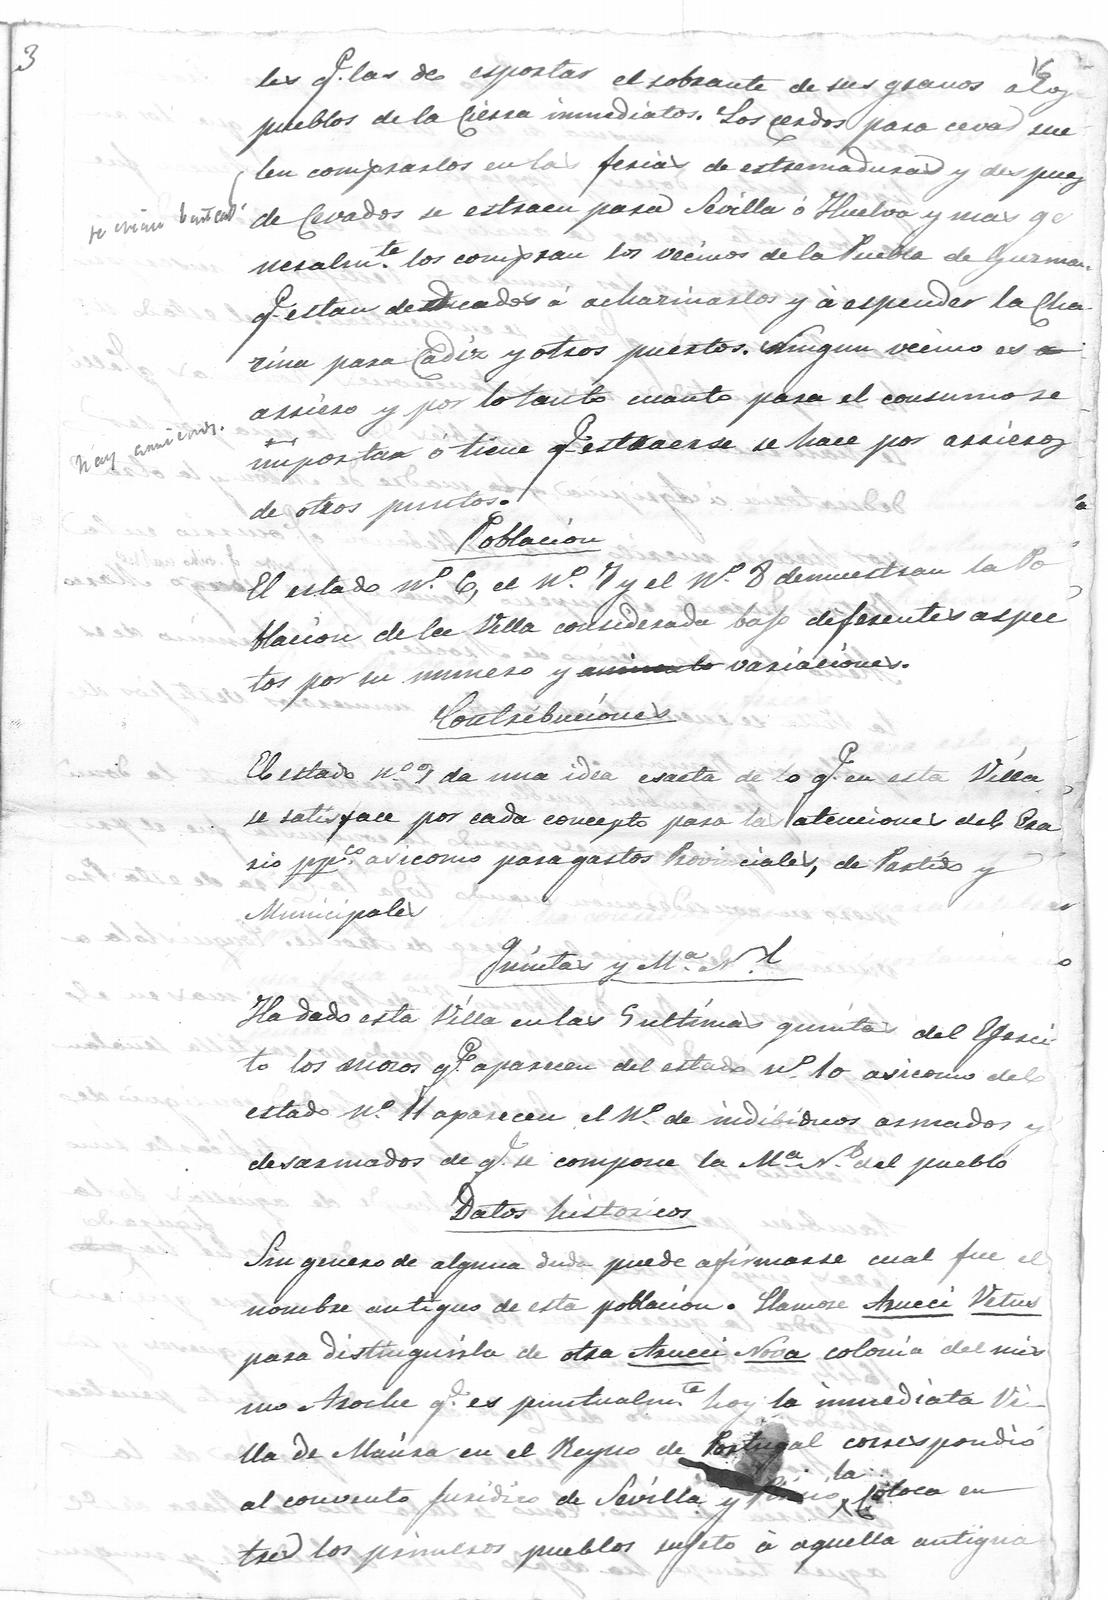 3
les q.e las de esportar el sobrante de sus granos a los
pueblos de la Cierra inmediatos. Los Cerdos para cevar sue
len comprarlos en las ferias de estremadura y despues
se crian bastant.
de Cevados se estraen para Sevilla ó Huelva y mas ge
neralm.te los compran los vecinos de la Puebla de Guzman
q.e estan dedicados á acharinarlos y á espender la Cha-
rina para Cadiz y otros puertos. Ningun vecino es
arriero y por lo tanto cuanto para el consumo se
hay arrieros.
importa ó tiene q.e estraerse se hace por arrieros
de otros puntos.
Poblacion
El estado n.o 6, el N.o 7 y el N.o 8 demuestran la Po
blacion de la Villa considerada bajo diferentes aspec
tos por su numero y aumento variaciones.
Contribuciones
El estado n.o 9 da una idea esacta de lo q.e en esta Villa
se satisface por cada concepto para las atenciones del Era
rio pp.co asi como para gastos Provinciales, de Partido y
Municipales
Quintas y M.a N.l
Ha dado esta Villa en las 5 ultimas quintas del Egerci
to los mozos q.e aparecen del estado n.o 10 asi como del
estado n.o 11 aparecen el N.o de indibiduos armados y
desarmados de q.e se compone la M.a N.l del pueblo
Datos historicos
Sin genero de alguna duda puede afirmarse cual fue el
nombre antiguo de esta poblacion. Llamose Arucci Vetus
para distinguirla de otra Arucci Nova colonia del mis
mo Aroche q.e es puntualm.te hoy la inmediata Vi-
lla de Maura en el Reyno de Portugal correspondió
al convento juridico de Sevilla y Plinio la coloca en
tre los primeros pueblos sujeto á aquella antigua